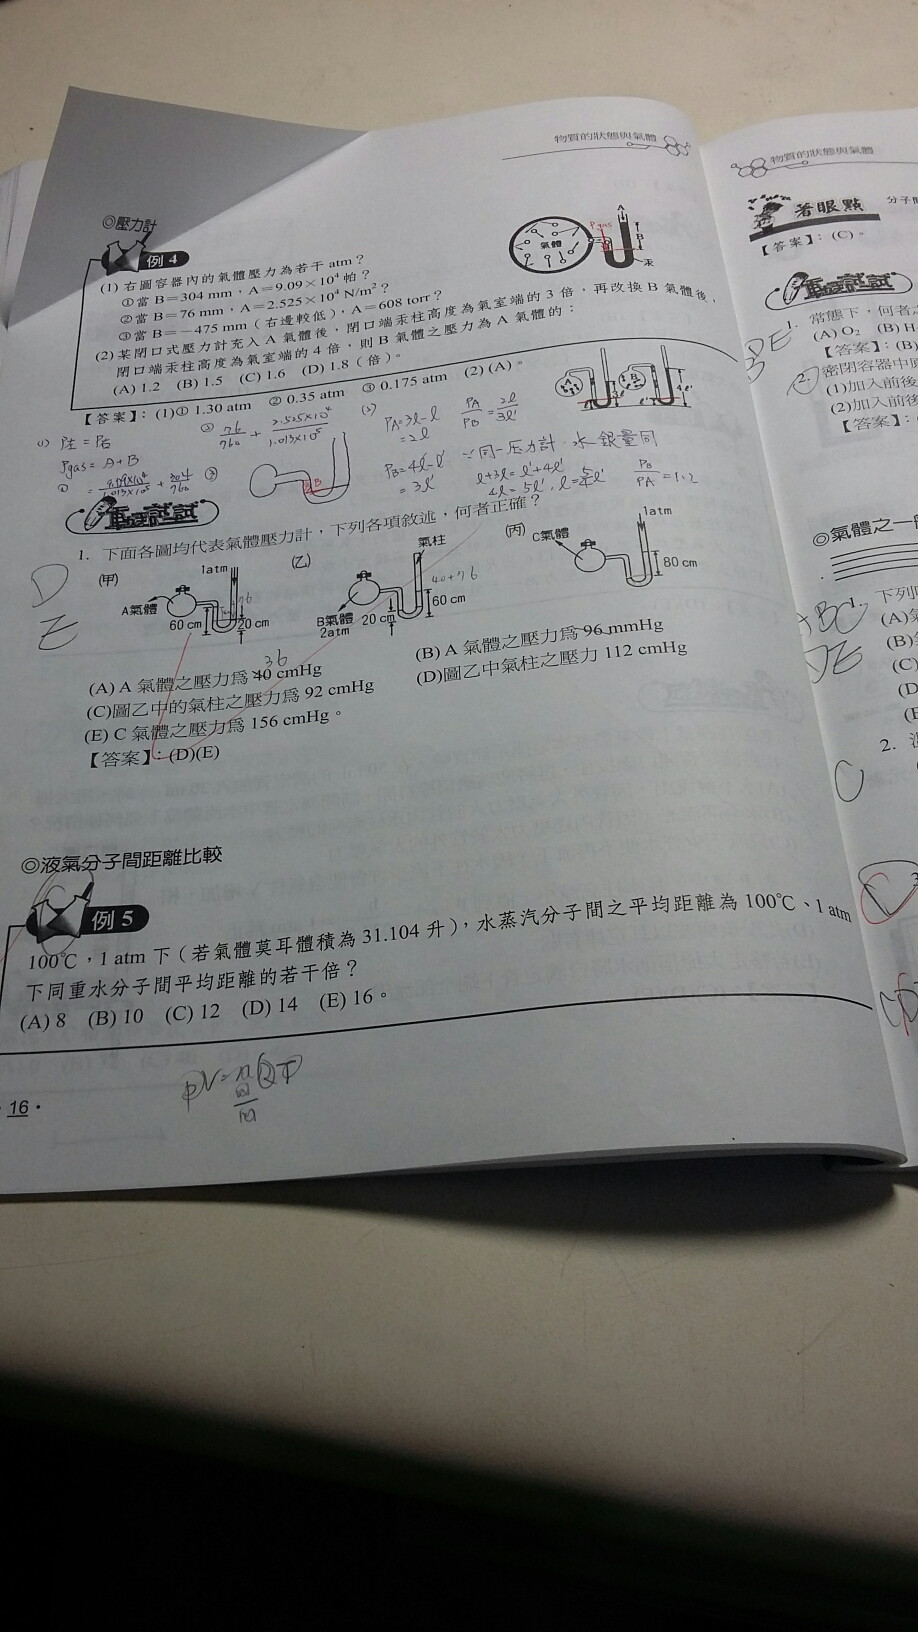 物質的狀態與氣體
◎壓力計
例 4
(1) 右圖容器內的氣體壓力為若干 atm？
①當 B＝304 mm，A＝9.09×10⁴ 帕？
②當 B＝76 mm，A＝2.525×10⁴ N/m²？
③當 B＝－475 mm（右邊較低），A＝608 torr？
(2) 某閉口式壓力計充入 A 氣體後，閉口端汞柱高度為氣室端的 3 倍，再改換 B 氣體後，
閉口端汞柱高度為氣室端的 4 倍，則 B 氣體之壓力為 A 氣體的：
(A) 1.2 (B) 1.5 (C) 1.6 (D) 1.8（倍）。
A
Pgas
氣體
B
汞
【答案】：(1)① 1.30 atm ② 0.35 atm ③ 0.175 atm (2) (A)。
(1) P左 = P右
Pgas = A+B
① = 9.09×10⁴/1.013×10⁵ + 304/760
② 76/760 + 2.525×10⁴/1.013×10⁵
③
B
(2) PA=3l-l
=2l
PB=4l'-l'
=3l'
PA/PB = 2l/3l'
∵同一压力計，水銀量同
l+3l=l'+4l'
4l=5l', l=5/4l'
PB/PA=1.2
試試
1. 下面各圖均代表氣體壓力計，下列各項敘述，何者正確？
D
E
(甲)
1atm
A氣體
60 cm
20 cm
76
(乙)
氣柱
40+76
60 cm
B氣體
2atm
20 cm
(丙)
C氣體
1atm
80 cm
36
(A) A 氣體之壓力為 40 cmHg
(B) A 氣體之壓力為 96 mmHg
(C)圖乙中的氣柱之壓力為 92 cmHg
(D)圖乙中氣柱之壓力 112 cmHg
(E) C 氣體之壓力為 156 cmHg。
【答案】：(D)(E)
◎液氣分子間距離比較
例 5
100℃，1 atm 下（若氣體莫耳體積為 31.104 升），水蒸汽分子間之平均距離為 100℃、1 atm
下同重水分子間平均距離的若干倍？
(A) 8 (B) 10 (C) 12 (D) 14 (E) 16。
·16·
物質的狀態與氣體
著眼點
分子間
【答案】：(C)。
試試
BE
1. 常態下，何者
(A) O₂ (B) H
【答案】：(B)
2. 密閉容器中
(1)加入前後
(2)加入前後
【答案】：
◎氣體之一
ABC
DE
1. 下列
(A)氣
(B)
(C)
(D)
(E
2.
C
C